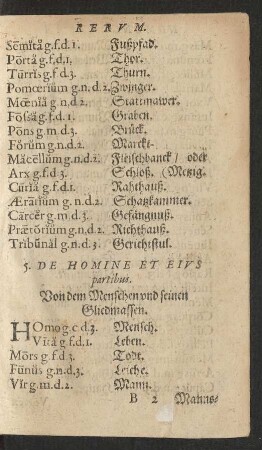 RERVM.
Sēmĭtă g.f.d.1. Fußpfad.
Pōrtă g.f.d.1. Thor.
Tūrrĭs g.f.d.3. Thurn.
Pomœrĭum g.n.d.2. Zwinger.
Mœnĭă g.n.d.2. Stattmawer.
Fōssă g.f.d.1. Graben.
Pōns g.m.d.3. Brück.
Fŏrum g.n.d.2. Marckt.
Măcēllum g.n.d.2. Fleischbanck / oder
Arx g.f.d.3. Schloß. (Metzig.
Cūrĭă g.f.d.1. Rahthauß.
Ærārĭum g.n.d.2. Schatzkammer.
Cārcĕr g.m.d.3. Gefängnuß.
Prætōrĭum g.n.d.2. Richthauß.
Trĭbūnăl g.n.d.3. Gerichtstul.
5. DE HOMINE ET EIVS
partibus.
Von dem Menschen vnd seinen
Gliedmassen.
HOmo g.c.d.3. Mensch.
Vītă g.f.d.1. Leben.
Mōrs g.f.d.3. Todt.
Fūnŭs g.n.d.3. Leiche.
Vĭr g.m.d.2. Mann.
B 2 Manns-